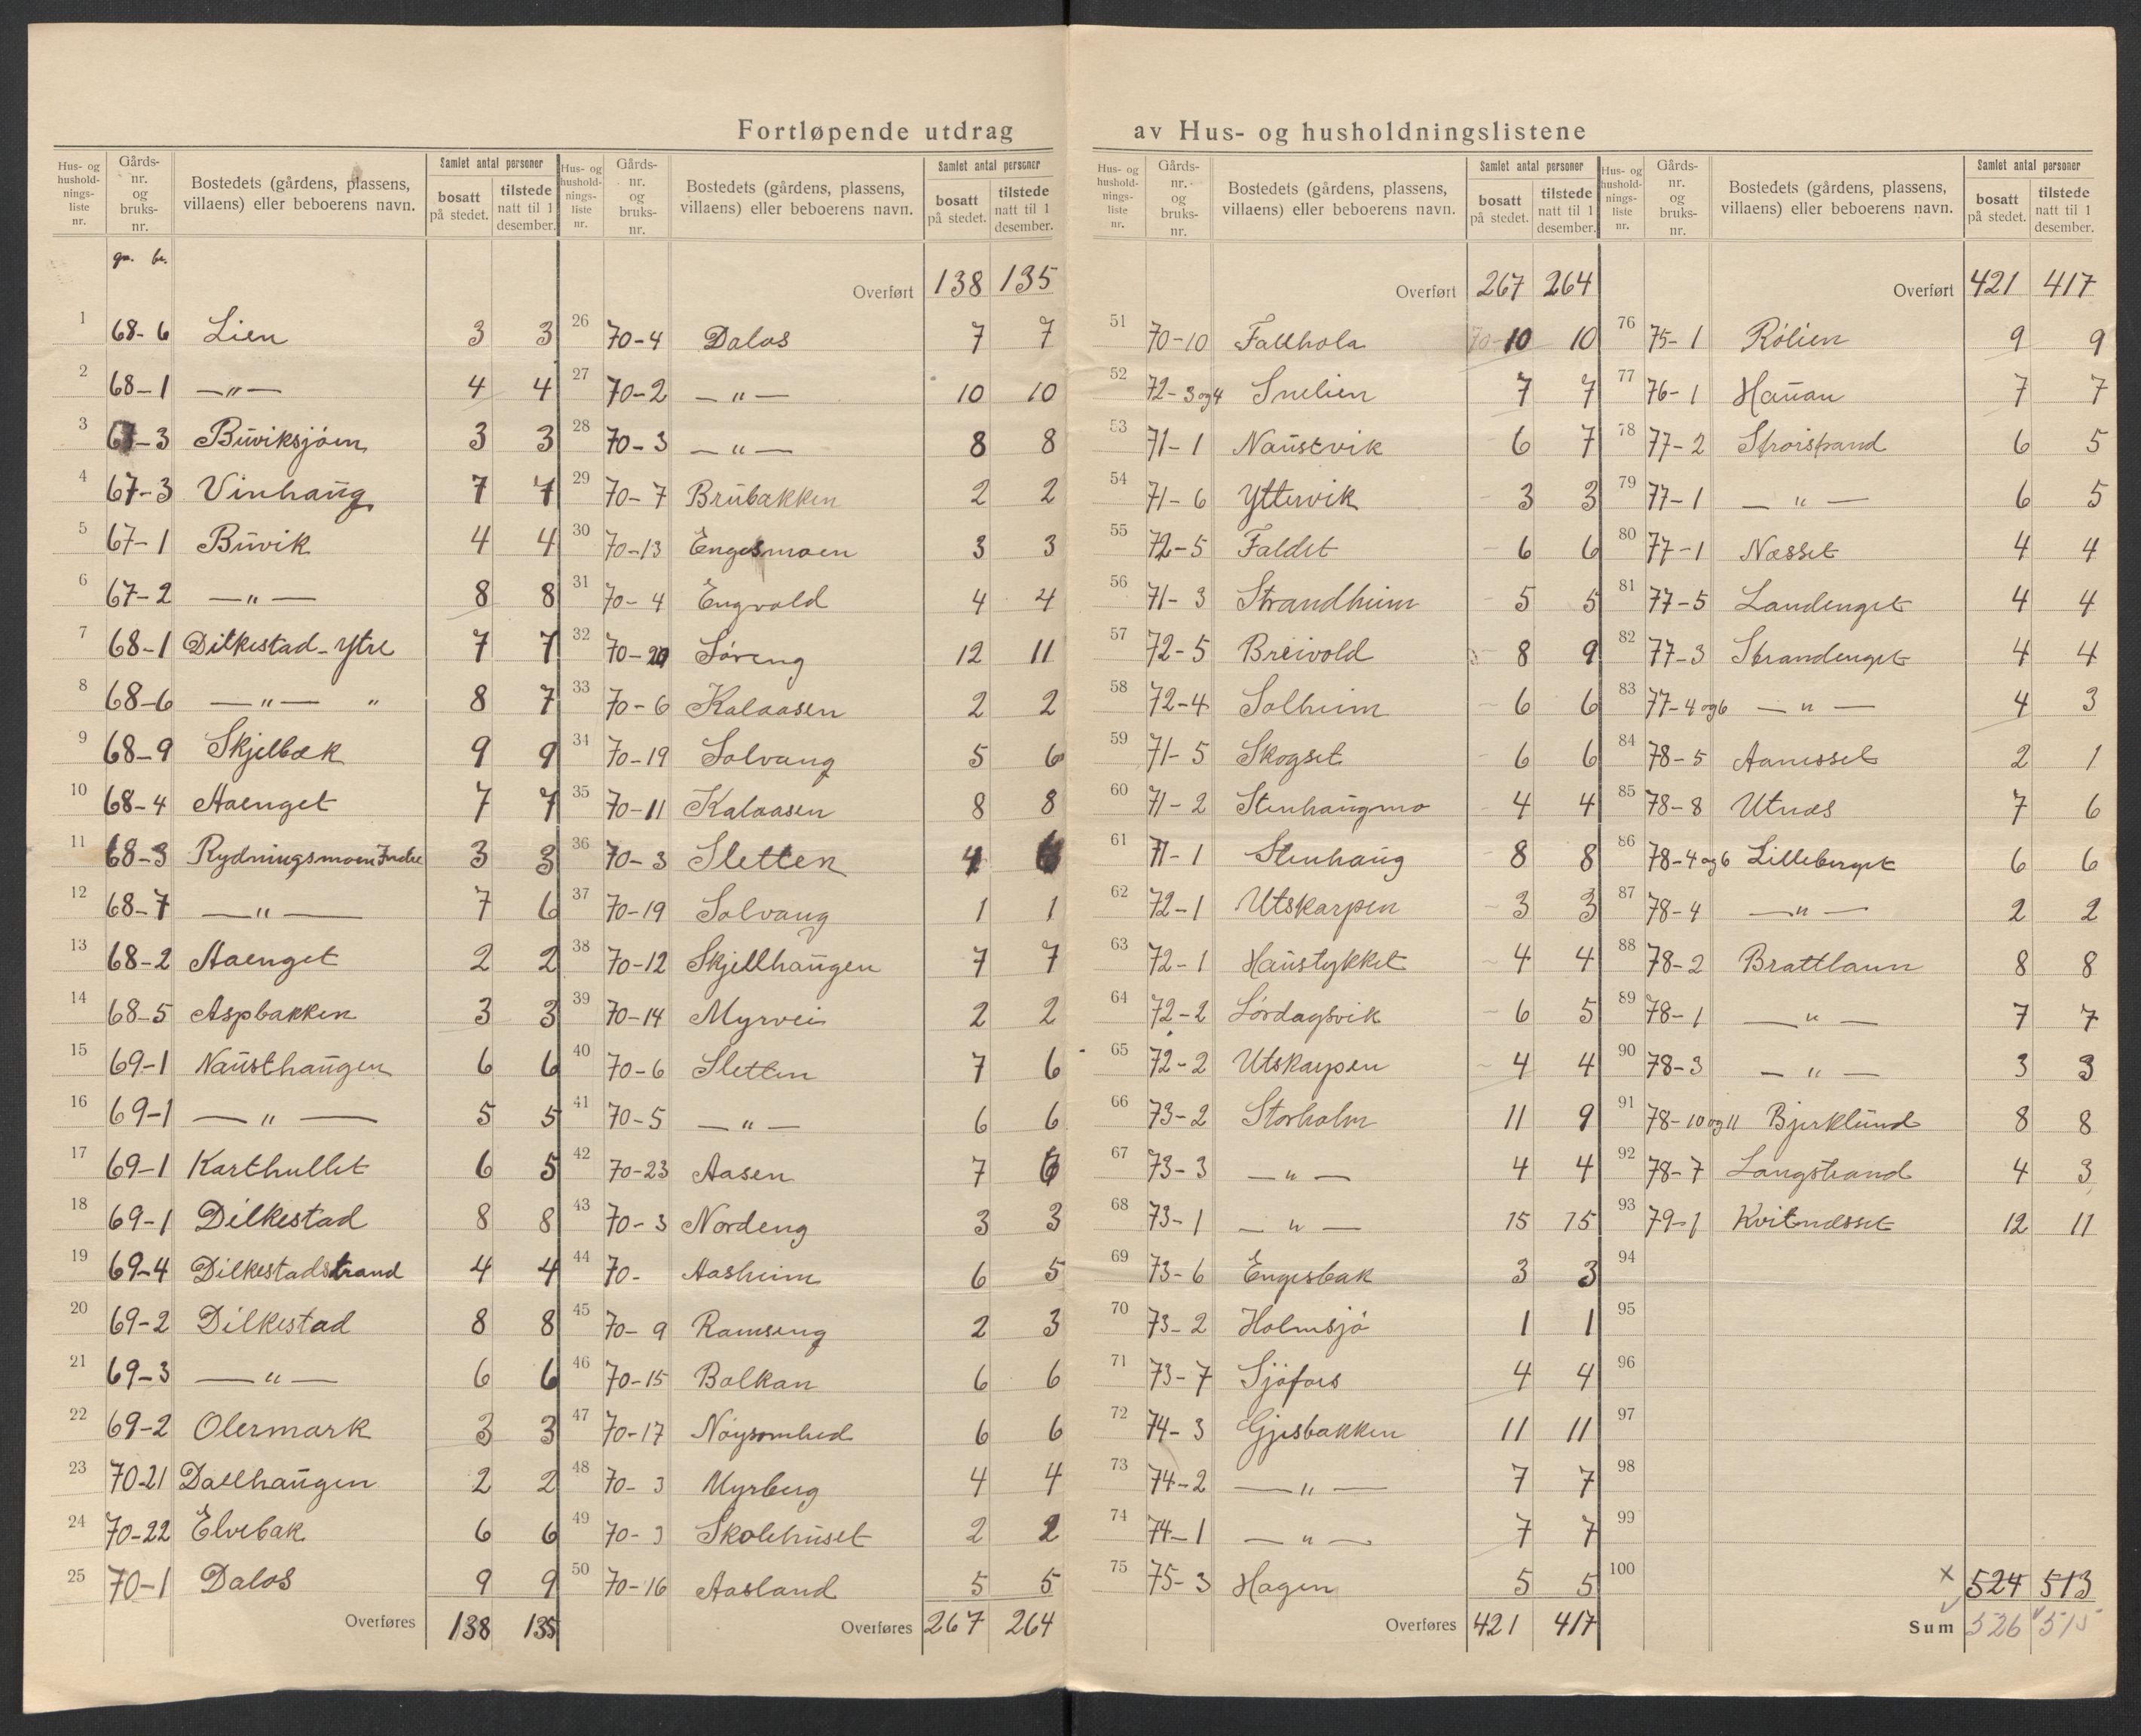 Fortløpende utdrag av Hus- og husholdningslistene
Hus- og husholdningsliste nr. | Gårds-nr. og bruks-nr. | Bostedets (gårdens, plassens, villaens) eller beboerens navn. | Samlet antal personer bosatt på stedet. | tilstede natt til 1 desember.
gn. bn.
1 68-6 Lien 3 3
2 68-1 —"— 4 4
3 67-3 Buviksjøen 3 3
4 67-3 Vinhaug 7 7
5 67-1 Buvik 4 4
6 67-2 —"— 8 8
7 68-1 Dilkestad-ytre 7 7
8 68-6 —"— " 8 7
9 68-9 Skjelbæk 9 9
10 68-4 Aaenget 7 7
11 68-3 Rydningsmoen Indre 3 3
12 68-7 —"— 7 6
13 68-2 Aaenget 2 2
14 68-5 Aspbakken 3 3
15 69-1 Nausthaugen 6 6
16 69-1 —"— 5 5
17 69-1 Karthullet 6 5
18 69-1 Dilkestad 8 8
19 69-4 Dilkestadstrand 4 4
20 69-2 Dilkestad 8 8
21 69-3 —"— 6 6
22 69-2 Olermark 3 3
23 70-21 Dallhaugen 2 2
24 70-22 Elvebak 6 6
25 70-1 Dalos 9 9
Overføres 138 135
Hus- og husholdningsliste nr. | Gårds-nr. og bruks-nr. | Bostedets (gårdens, plassens, villaens) eller beboerens navn. | Samlet antal personer bosatt på stedet. | tilstede natt til 1 desember.
Overført 138 135
26 70-4 Dalos 7 7
27 70-2 —"— 10 10
28 70-3 —"— 8 8
29 70-7 Brubakken 2 2
30 70-13 Engesmoen 3 3
31 70-4 Engvold 4 4
32 70-20 Søreng 12 11
33 70-6 Kalaasen 2 2
34 70-19 Solvang 5 6
35 70-11 Kalaasen 8 8
36 70-3 Sletten 4 6
37 70-19 Solvang 1 1
38 70-12 Skjellhaugen 7 7
39 70-14 Myrvei 2 2
40 70-6 Sletten 7 6
41 70-5 —"— 6 6
42 70-23 Aasen 7 6
43 70-3 Nordeng 3 3
44 70- Aasheim 6 5
45 70-9 Ramseng 2 3
46 70-15 Balkan 6 6
47 70-17 Nøysomhed 6 6
48 70-3 Myrberg 4 4
49 70-3 Skolehuset 2 2
50 70-16 Aasland 5 5
Overføres 267 264
Hus- og husholdningsliste nr. | Gårds-nr. og bruks-nr. | Bostedets (gårdens, plassens, villaens) eller beboerens navn. | Samlet antal personer bosatt på stedet. | tilstede natt til 1 desember.
Overført 267 264
51 70-10 Fallhola 10 10
52 72-3 og 4 Snelien 7 7
53 71-1 Naustvik 6 7
54 71-6 Yttervik 3 3
55 72-5 Faldet 6 6
56 71-3 Strandheim 5 5
57 72-5 Breivold 8 9
58 72-4 Solheim 6 6
59 71-5 Skogset 6 6
60 71-2 Stenhaugmo 4 4
61 71-1 Stenhaug 8 8
62 72-1 Utskarpen 3 3
63 72-1 Haustykket 4 4
64 72-2 Lørdagsvik 6 5
65 72-2 Utskarpen 4 4
66 73-2 Storholm 11 9
67 73-3 —"— 4 4
68 73-1 —"— 15 15
69 73-6 Engesbak 3 3
70 73-2 Holmsjø 1 1
71 73-7 Sjøfors 4 4
72 74-3 Gjesbakken 11 11
73 74-2 —"— 7 7
74 74-1 —"— 7 7
75 75-3 Hagen 5 5
Overføres 421 417
Hus- og husholdningsliste nr. | Gårds-nr. og bruks-nr. | Bostedets (gårdens, plassens, villaens) eller beboerens navn. | Samlet antal personer bosatt på stedet. | tilstede natt til 1 desember.
Overført 421 417
76 75-1 Rølien 9 9
77 76-1 Hauan 7 7
78 77-2 6 5
79 77-1 —"— 6 5
80 77-1 Næsset 4 4
81 77-5 Landenget 4 4
82 77-3 Strandenget 4 4
83 77-4 og 6 —"— 4 3
84 78-5 Aanesset 2 1
85 78-8 Utnæs 7 6
86 78-4 og 6 Lilleberget 6 6
87 78-4 —"— 2 2
88 78-2 Brattlann 8 8
89 78-1 —"— 7 7
90 78-3 —"— 3 3
91 78-10 og 11 Bjerklund 8 8
92 78-7 Langstrand 4 3
93 79-1 Kvitnæsset 12 11
94
95
96
97
98
99
100
x 524 513
Sum 526 515